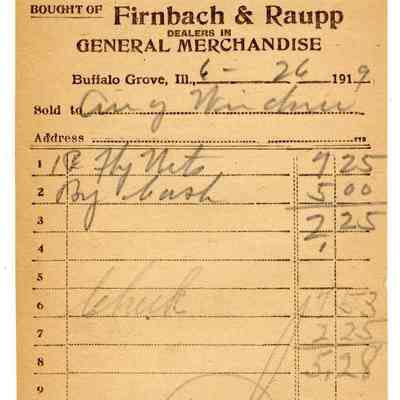 BOUGHT OF Firnbach & Raupp
DEALERS IN
GENERAL MERCHANDISE
Buffalo Grove, Ill., 6 - 26 1919
Sold to
Address
1 Fly Nets 7 25
2 By Cash 5 00
3 2 25
4
5
6 Check 17 53
7 2 25
8 5,28
9